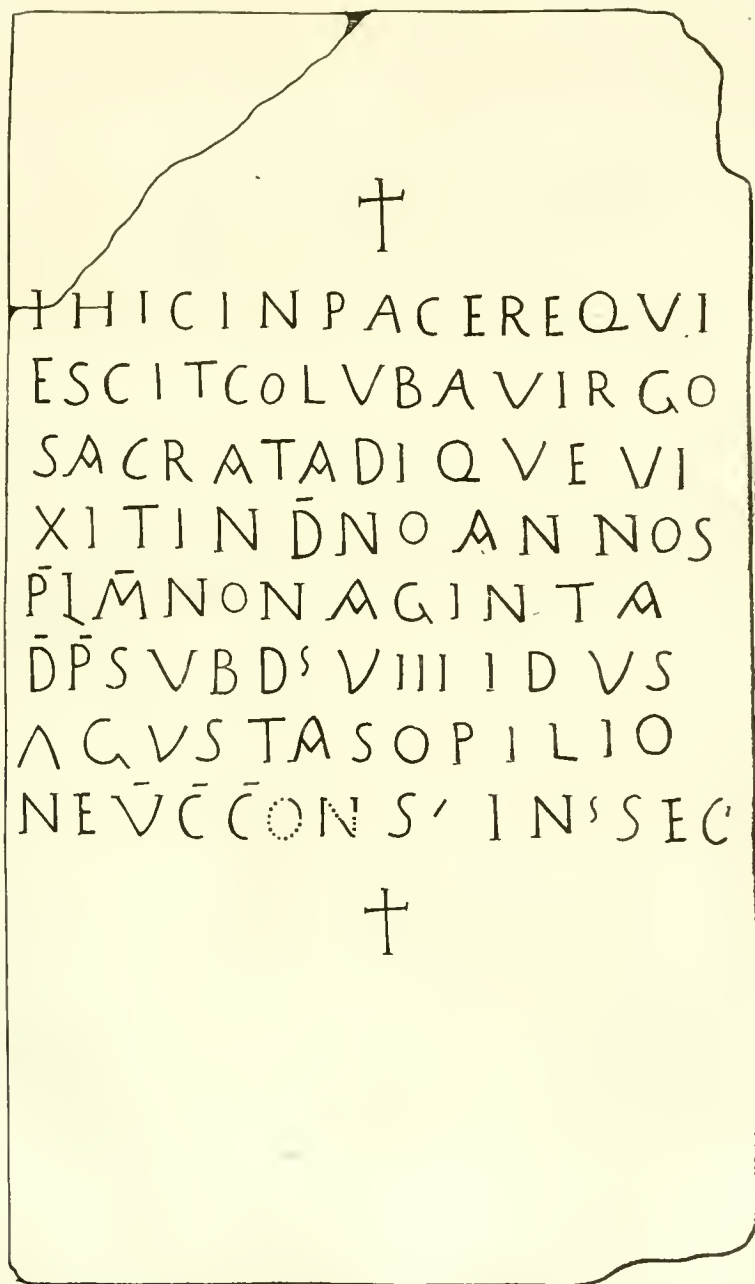 †
† HICINPACEREQVI
ESCITCOLVBAVIRGO
SACRATADIQVEVI
XITIN D̄NOANNOS
P̄LM̄NONAGINTA
D̄P̄SVBDˢVIIIIDVS
AGVSTASOPILIO
NEV̄C̄C̄ONS' INˢSEC'
†